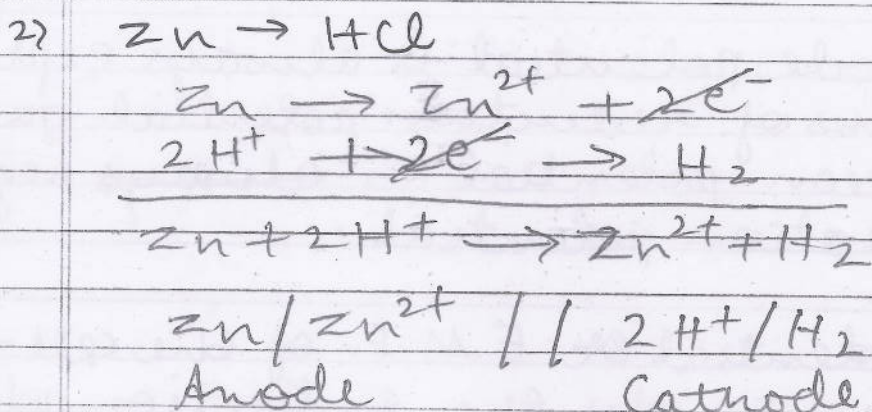 2) Zn → HCl
Zn → Zn²⁺ + 2e⁻
2H⁺ + 2e⁻ → H₂
Zn + 2H⁺ → Zn²⁺ + H₂
Zn / Zn²⁺ // 2H⁺ / H₂
Anode Cathode